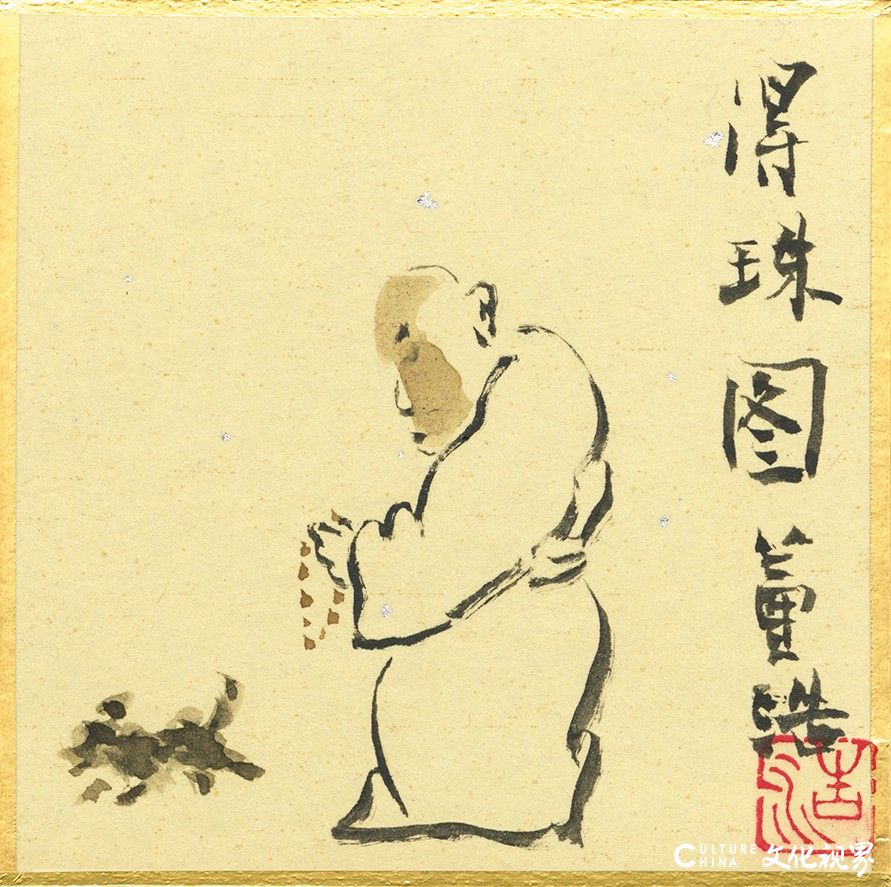 得珠图董浩
浩
CULTURE
CHINA
文化视界